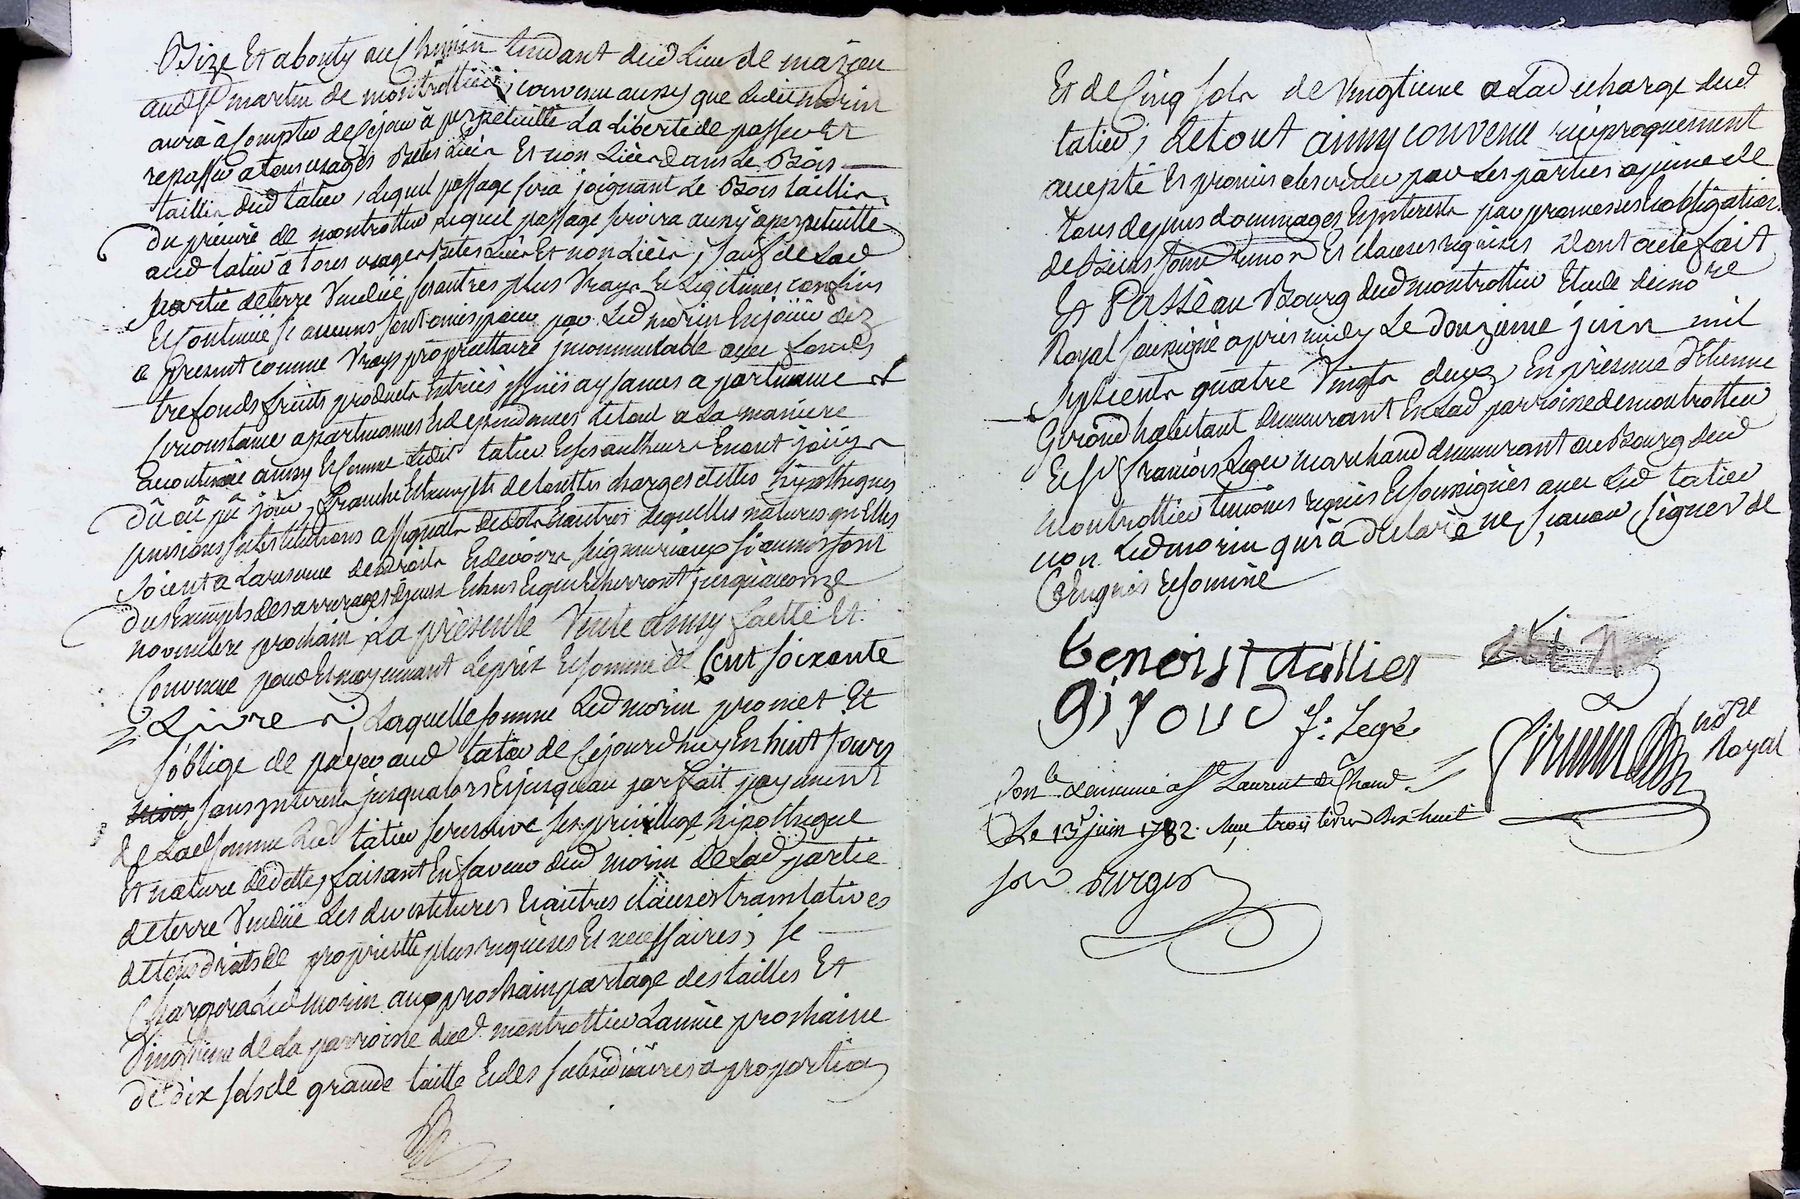 Bize Et abouty au Chemin tendant dud Lieu de mazieu
aud St martin de montrottier, convenu aussy que Ledit morin
aura à Compter de Cejour à perpetuitté La Liberté de passer Et
repasser a tous usages Betes Liées Et non Liées dans Le Bois
taillis dud tatier, Lequel passage sera joignant Le Bois taillis
du prieuré de montrottier Lequel passage servira aussy à perpetuitté
aud tatier a tous usages Betes Liées Et non Liées, sauf de Lad
partie de terre Vendüe ses autres plus Vrays Et Legitimes confins
Et Contenüe Si aucuns sont omis pour par Led morin En joüir dez
a present comme Vrays proprietaire jncommutable avec fonds
trefonds fruits produits Entrées jssües aysances apartenance Et
Circonstance apartenances Et dependances Letout a La maniere
accoutumée ainsy Et Comme Ledit tatier Et ses autheurs En ont joüys
dû où pû joüir, franche Et Exempte de touttes charges dettes hipotheques
pensions substitutions assignats de dots Et autres Lequelles natures qu'Elles
soient a Lareserve des droits Et devoirs seigneuriaux si aucuns sont
dus Exempts des arrerages dupassé Et ceux Equi echerront jusquaonze
novembre prochain, La presente Vente ainsy faitte Et
Convenüe pour Et moyennant Leprix Et somme de Cent soixante
Livres, Laquelle somme Led morin promet Et
s'oblige de payer aud tatier de Cejourdhuy En huit Jours
sans jnterests jusqualors Et jusqueau parfait payement
de Lad somme Led tatier se reserve ses privillege hipotheque
Et nature de dette, faisant En faveur dud morin de Lad partie
de terre Vendüe Les devestitures Et autres clauses translatives
de tous droits de proprietté plus requises Et necessaires, se
Chargera Led morin au prochain partage des tailles Et
Vingtieme de La parroisse dud montrottier Lannée prochaine
de dix sols de grande taille Et des subsidiaires a proportion
Et de Cinq sols de Vingtieme a La decharge dud
tatier, Letout ainsy convenu reciproquement
accepté Et promis observer par Les parties apeine de
tous depens dommages Et jnterests par promesses Et obligation
de Biens soumissions Et clauses requises dont acte fait
Et Passé au Bourg dud montrottier Etude du nore
Royal soussigné apres midy Le douzieme juin mil
septcents quatre Vingts deux, En presence d'Etienne
Giroud habitant demeurant En Lad parroisse de montrottier
Et Sr François Leger marchand demeurant au Bourg dud
Montrottier temoins requis Et soussignés avec Led tatier
non Led morin qui a declaré ne sçavoir signer de
Ce Enquis Et sommé
benoist tattier
giroud
f: Legé
nore
Royal
Conle Et insinué à St Laurent de Cham.
Le 13e juin 1782. Reçu trois Livres Dix huit
sols Burgos